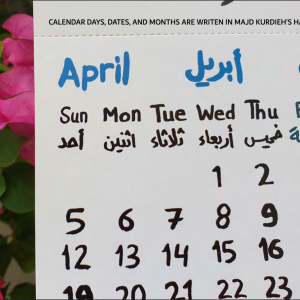 CALENDAR DAYS, DATES, AND MONTHS ARE WRITEN IN MAJD KURDIEH'S
April أبريل
Sun Mon Tue Wed Thu
أحد اثنين ثلاثاء أربعاء خميس
1 2
5 6 7 8 9
12 13 14 15 16
19 20 21 22 23